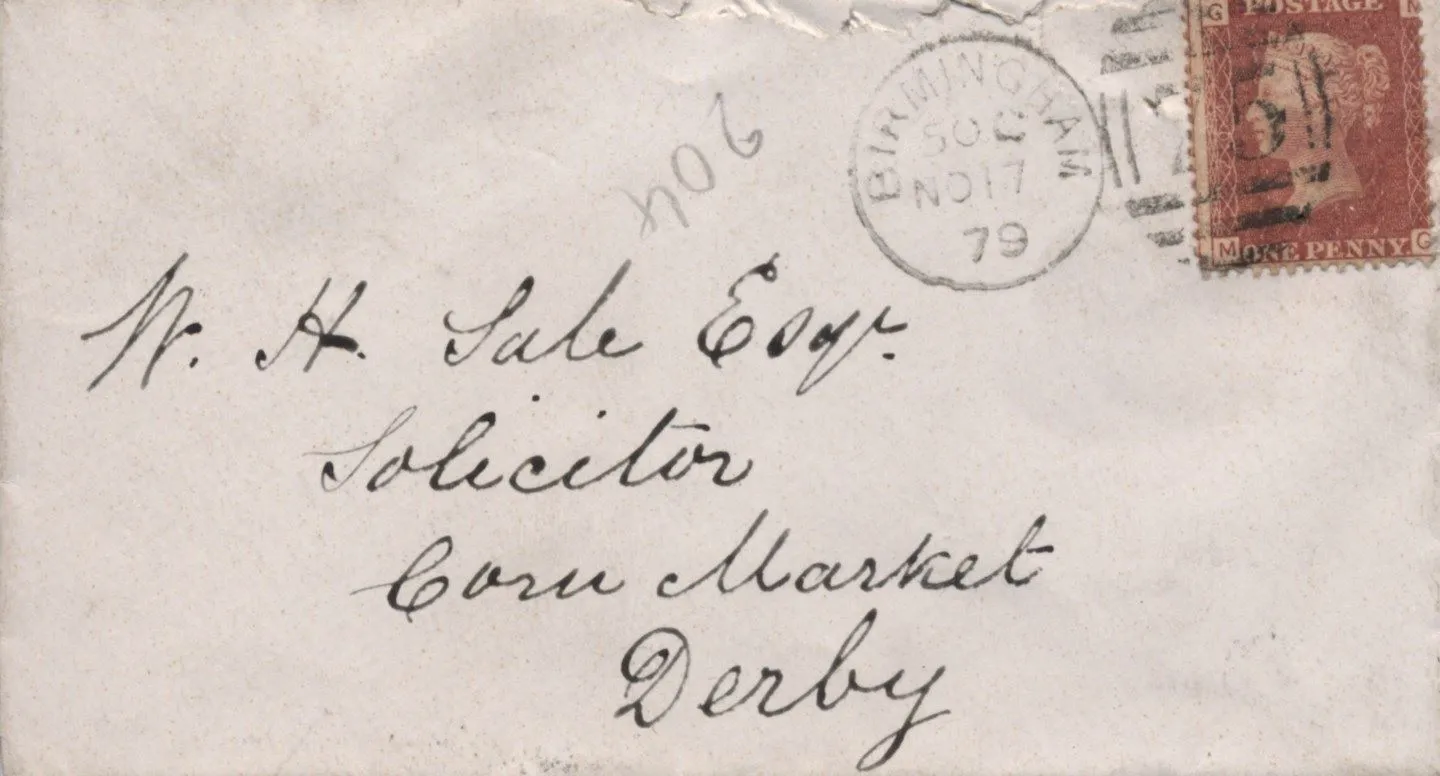 G POSTAGE M
BIRMINGHAM
NO 17
79
75
M ONE PENNY G
204
W. H. Sale Esqr.
Solicitor
Corn Market
Derby